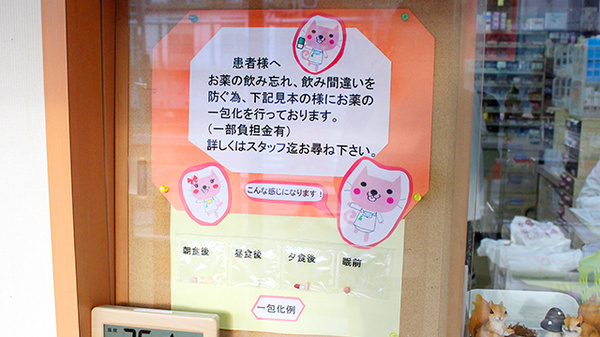 患者様へ
お薬の飲み忘れ、飲み間違いを
防ぐ為、下記見本の様にお薬の
一包化を行っております。
(一部負担金有)
詳しくはスタッフ迄お尋ね下さい。
こんな感じになります!
朝食後 昼食後 夕食後 眠前
一包化例